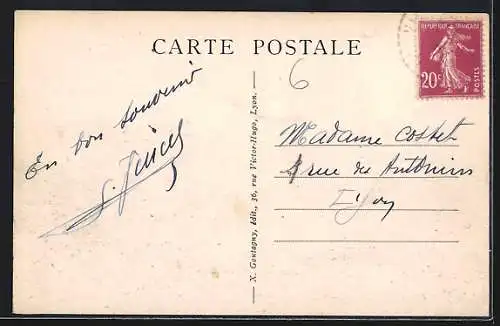 CARTE POSTALE
REPUBLIQUE FRANÇAISE
20c
POSTES
6
En bon souvenir
X. Goutagny, édit., 36, rue Victor-Hugo, Lyon.
Madame Costet
rue des Antonins
Lyon